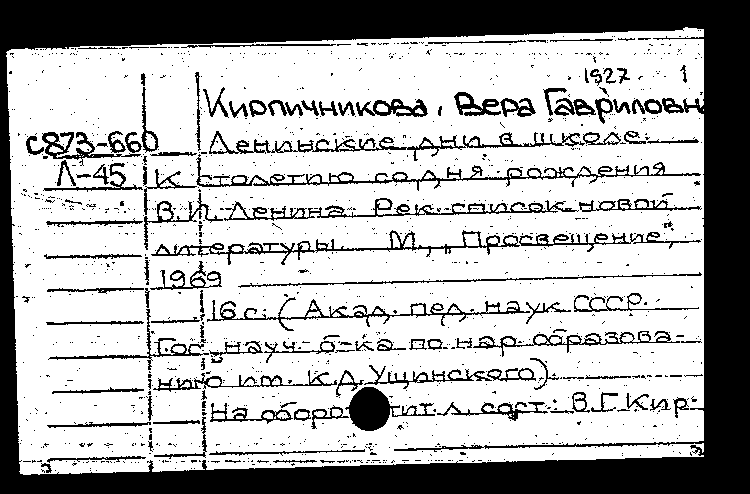 1927 1
Кирпичникова, Вера Гавриловн
с873-660 Ленинские дни в школе.
Л-45 К столетию со дня рождения
В.И. Ленина. Рек. список новой
литературы. М., "Просвещение",
1969
16 с. (Акад. пед. наук СССР.
Гос. науч. б-ка по нар. образова-
нию им. К.Д. Ушинского).
На оборо тит. л. сост.: В.Г. Кир-